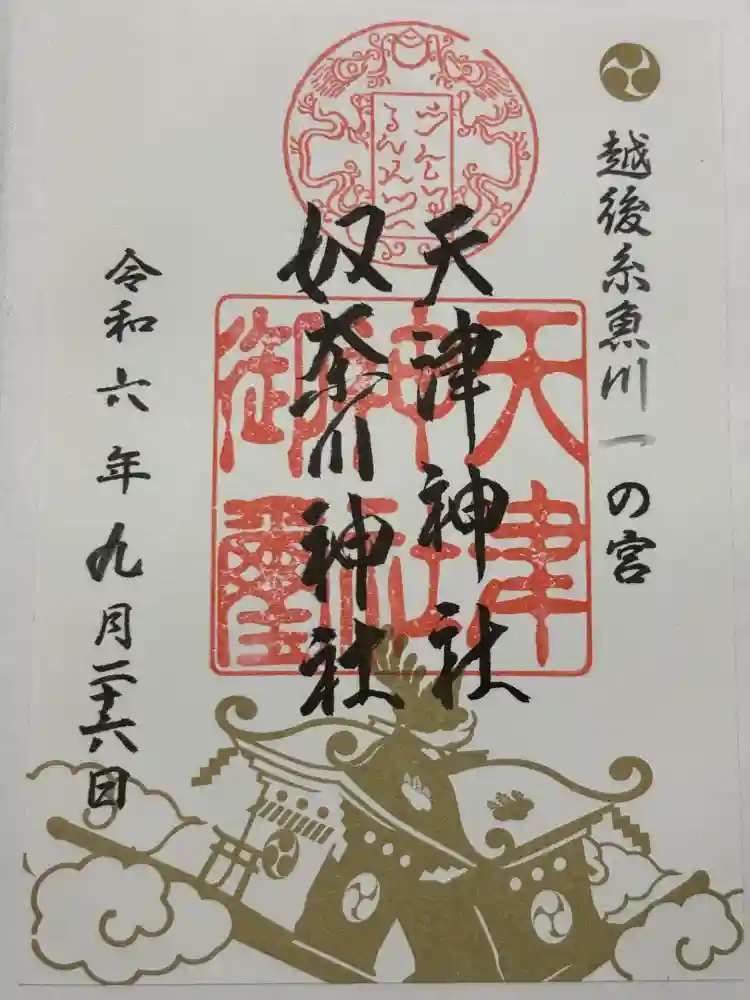 越後糸魚川一の宮
天津神社
奴奈川神社
天津
神社
御璽
令和六年九月二十六日